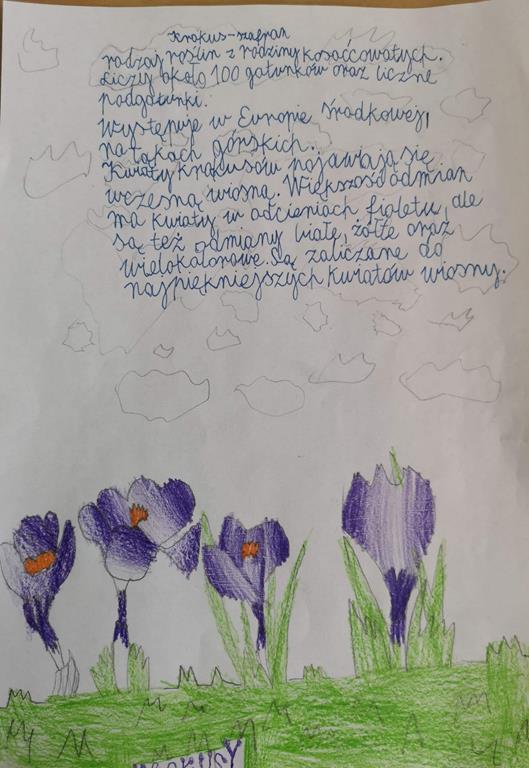 Krokus-szafran
rodzaj roślin z rodziny kosaćcowatych.
Liczy około 100 gatunków oraz liczne
podgatunki.
Występuje w Europie Środkowej,
na łąkach górskich.
Kwiaty krokusów pojawiają się
wczesną wiosną. Większość odmian
ma kwiaty w odcieniach fioletu, ale
są też odmiany białe, żółte oraz
wielokolorowe. Są zaliczane do
najpiękniejszych kwiatów wiosny.
KROKUSY